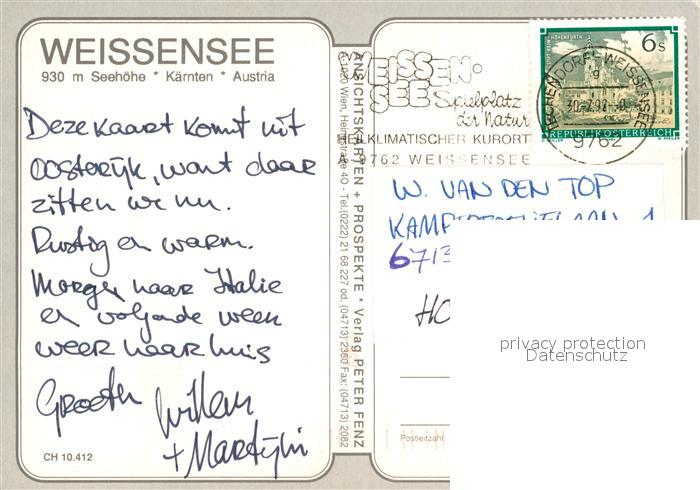 WEISSENSEE
930 m Seehöhe * Kärnten * Austria
Deze kaart komt uit
Oosterijk, want daar
zitten we nu.
Rustig en warm.
Morgen naar Italie
en volgende week
weer naar huis
Groeten Willem
+ Martijn
CH 10.412
ANSICHTSKARTEN + PROSPEKTE * Verlag PETER FENZ
A-1020 Wien, Heinestrasse 40 - Tel. (0222) 21 68 227 od. (04713) 2360 Fax: (04713) 2082
WEISSEN-
SEE Spielplatz
der Natur
HEILKLIMATISCHER KURORT
A-9762 WEISSENSEE
6 S
REPUBLIK ÖSTERREICH
TECHENDORF-WEISSENSEE
9762
W. VAN DEN TOP
6713
HO
Postleitzahl
privacy protection
Datenschutz